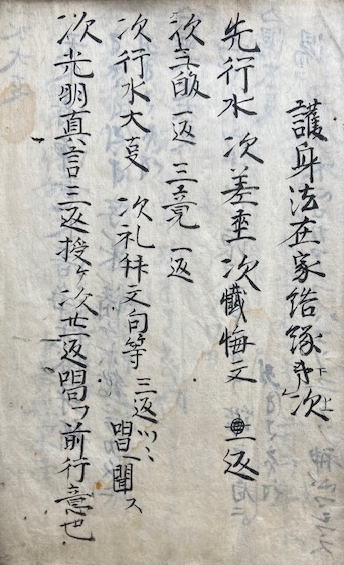 護身法在家結縁事次
先行水 次着座 次懺悔文 返
次三皈 一返 三竟 一返
次行水大 次礼拝文句等 三返ツヽ唱聞ス
次光明真言三返授ケ次廿一返唱フ前行意也